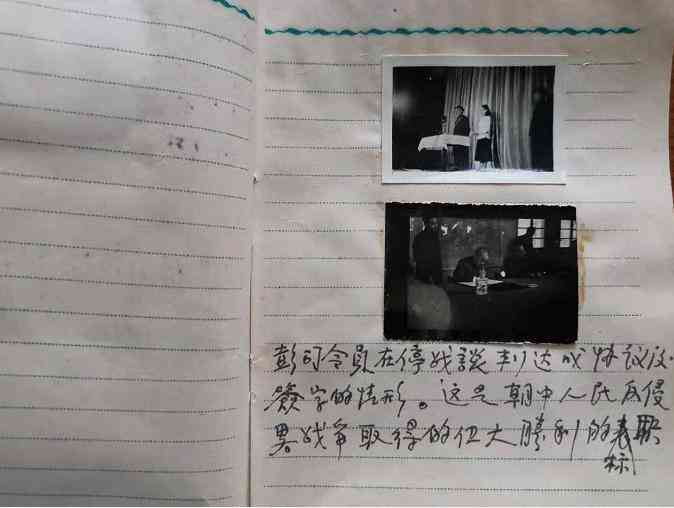 彭司令員在停战談判达成协议后
簽字的情形。这是朝中人民反侵
畧战爭取得的伟大勝利的
标